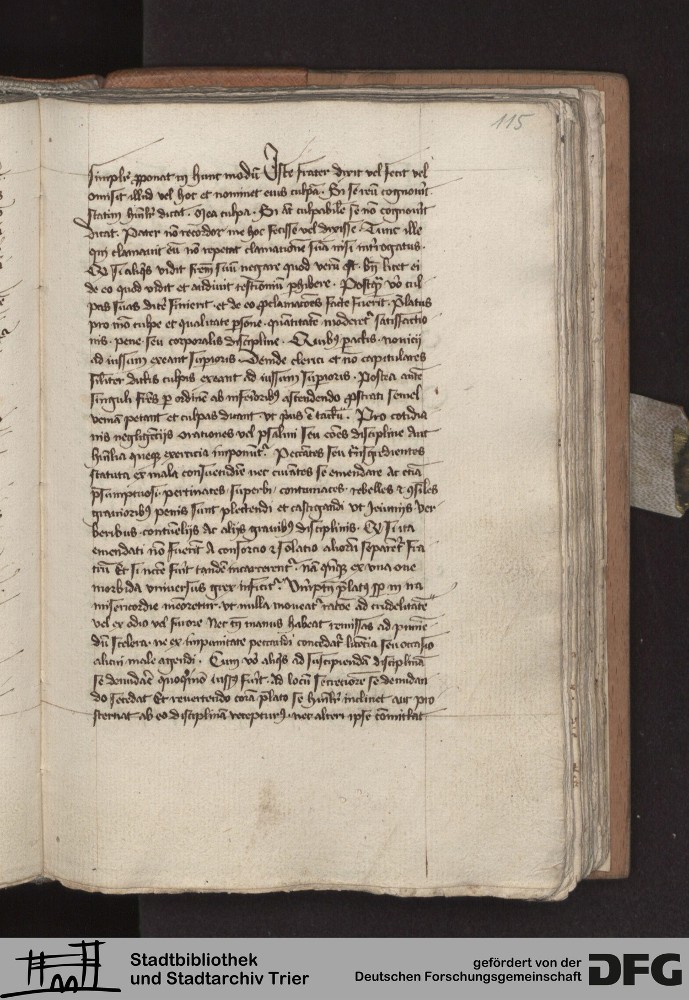 115
simplr proponat in hunc modū Iste frater dixit vel fecit vel
omisit illud vel hoc et nominet eius culpā. Si se reū cognouit
statim humlr dicat. Mea culpa. Si aut culpabilē se nō cognouit
dicat. Pater nō recordor me hoc fecisse vel dixisse. Tunc ille
qui clamauit eū nō repetat clamationē suā nisi introgatus.
Qd si aliqs vidit frem suū negare quod verū est. bn licet ei
de eo quod vidit et audiuit testimoniū phibere. Postqm vo cul
pas suas dicere finierint et de eo pclamacoes facte fuerint. Platus
pro mo culpe et qualitate psone. quantitatē moderetr satisfactio
nis. pene. seu corporalis discipline. Quibus pactis. nouicij
ad iussum exeant supioris. Deinde clerici et nō capitulares
silr dictis culpis exeant ad iussum supioris. Postea aute
singuli frēs p ordinē ab inferioribus ascendendo pstrati semel
veniā petant et culpas dicant. vt pus ē tactū. Pro cotidia
nis negligentijs orationes vel psalmi seu coes discipline aut
humlia queque exercicia imponutr. Peccātes seu transgredientes
statuta ex mala consuetudine nec curātes se emendare ac etiā
psumptuosi. pertinaces. superbi. contumaces. rebelles et consiles
grauioribus penis sunt plectendi et castigandi vt ieiunijs ver
beribus. contumelijs ac alijs grauibus disciplinis. Qd si ita
emendati nō fuerint a consorcio et solatio aliorū separentr fra
trū Et si necesse fuerit tandē incarcerentr. nā quāqz ex vna oue
morbida vniuersus grex inficitr. Verūptn platus semp in ma
misericordie memoretur. vt nulla moueatr ratoe ad crudelitatē
vel ex odio vel furore Nec in manus habeat remissas ad punie
dū scelera. ne ex impunitate peccandi concedatr licēcia seu occasio
alicui male agendi. Cum vo aliqs ad suscipiendā disciplinā
se denudare quoqmo iussus fuerit. ad locū secreciorē se denudan
do secedat Et reuertendo corā plato se humlr inclinet aut pro
sternat ab eo disciplinā recepturus. nec alteri ipse committat
Stadtbibliothek
und Stadtarchiv Trier
gefördert von der
Deutschen Forschungsgemeinschaft
DFG